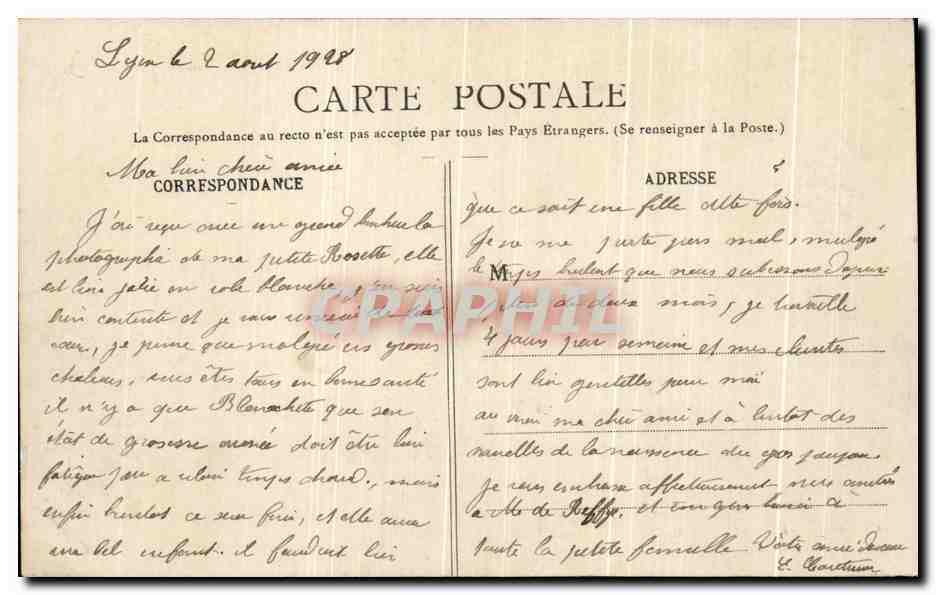 Lyon le 2 aout 1928
CARTE POSTALE
La Correspondance au recto n'est pas acceptée par tous les Pays Étrangers. (Se renseigner à la Poste.)
Ma bien chère amie
CORRESPONDANCE
J'ai reçu avec un grand bonheur la
photographie de ma petite Rosette, elle
est bien jolie en robe blanche, j'en suis
bien contente et je vous remercie de bon
cœur, je pense que malgré ces grosses
chaleurs, vous êtes tous en bonne santé
il n'y a que Blanchette que son
état de grosesse avancée doit être bien
fatiguée par ce vilain temps chaud, mais
enfin bientot ce sera fini, et elle aura
un bel enfant. il faudrait bien
ADRESSE
que ce soit une fille cette fois.
Je ne me porte pas mal, malgré
M
le temps brulant que nous subissons depuis
plus de deux mois, je travaille
4 jours par semaine et mes clientes
sont bien gentilles pour moi
au revoir ma chère amie et à bientot des
nouvelles de la naissance du gros poupon.
Je vous embrasse affectueusement mes amitiés
a Mr de Reffye, et bonjour à
toute la petite famille Votre amie
CPAPHIL